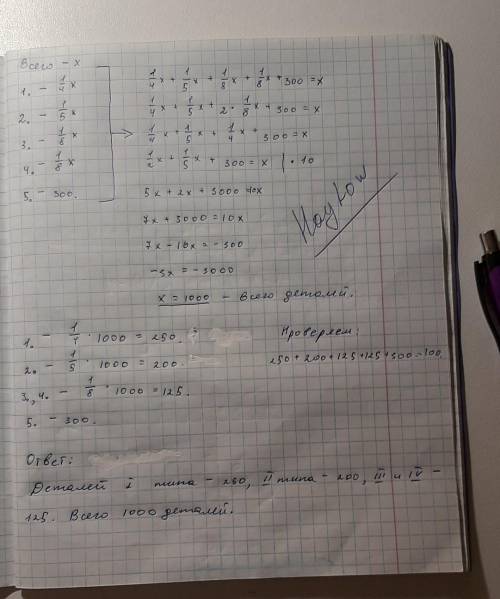 Всего – x
1. – 1/4 x
2. – 1/5 x
3. – 1/8 x
4. – 1/8 x
5. – 300.
1/4 x + 1/5 x + 1/8 x + 1/8 x + 300 = x
1/4 x + 1/5 x + 2 · 1/8 x + 300 = x
1/4 x + 1/5 x + 1/4 x + 300 = x
1/2 x + 1/5 x + 300 = x | · 10
5x + 2x + 3000 = 10x
7x + 3000 = 10x
7x – 10x = – 300
–3x = – 3000
x = 1000 – всего деталей.
1. – 1/4 · 1000 = 250.
2. – 1/5 · 1000 = 200.
3., 4. – 1/8 · 1000 = 125.
5. – 300.
Проверяем:
250 + 200 + 125 + 125 + 300 = 100.
Ответ:
Деталей I типа – 250, II типа – 200, III и IV –
125. Всего 1000 деталей.